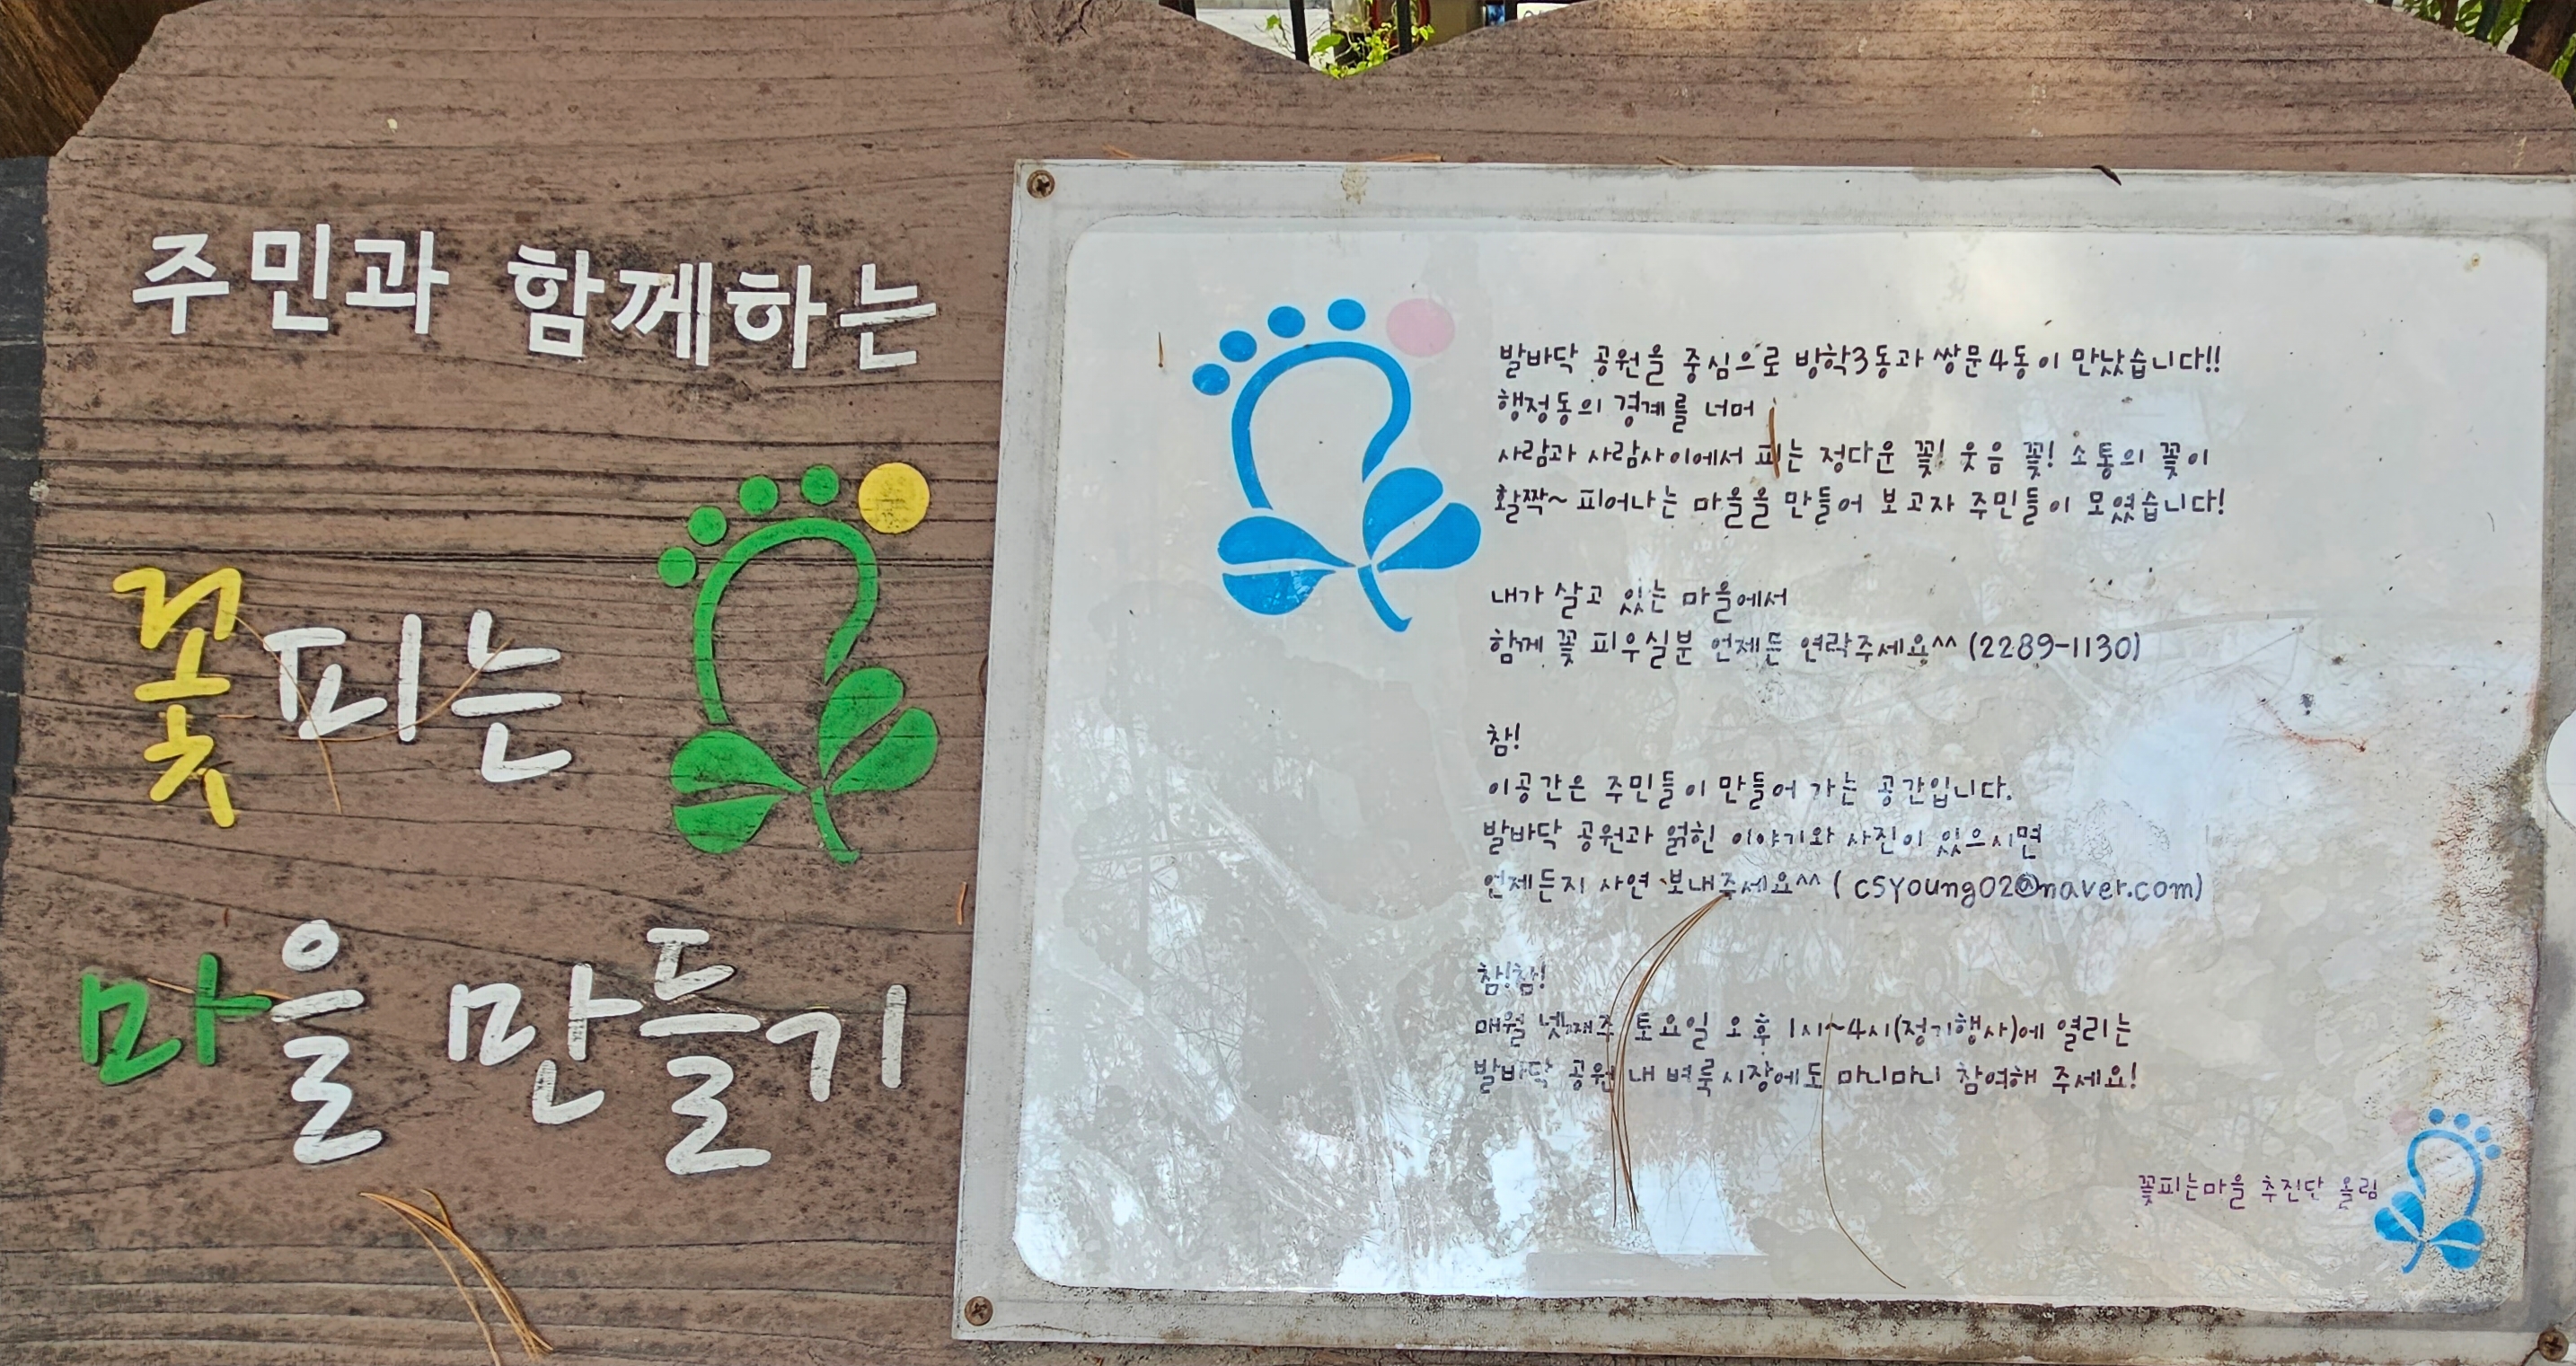 주민과 함께하는
꽃피는
마을 만들기
발바닥 공원을 중심으로 방학3동과 쌍문4동이 만났습니다!!
행정동의 경계를 너머
사람과 사람사이에서 피는 정다운 꽃! 웃음 꽃! 소통의 꽃이
활짝~ 피어나는 마을을 만들어 보고자 주민들이 모였습니다!
내가 살고 있는 마을에서
함께 꽃 피우실분 언제든 연락주세요^^ (2289-1130)
참!
이공간은 주민들이 만들어 가는 공간입니다.
발바닥 공원과 얽힌 이야기와 사진이 있으시면
언제든지 사연 보내주세요^^ ( csyoung02@naver.com)
참!참!
매월 넷째주 토요일 오후 1시~4시(정기행사)에 열리는
발바닥 공원 내 벼룩시장에도 마니마니 참여해 주세요!
꽃피는마을 추진단 올림